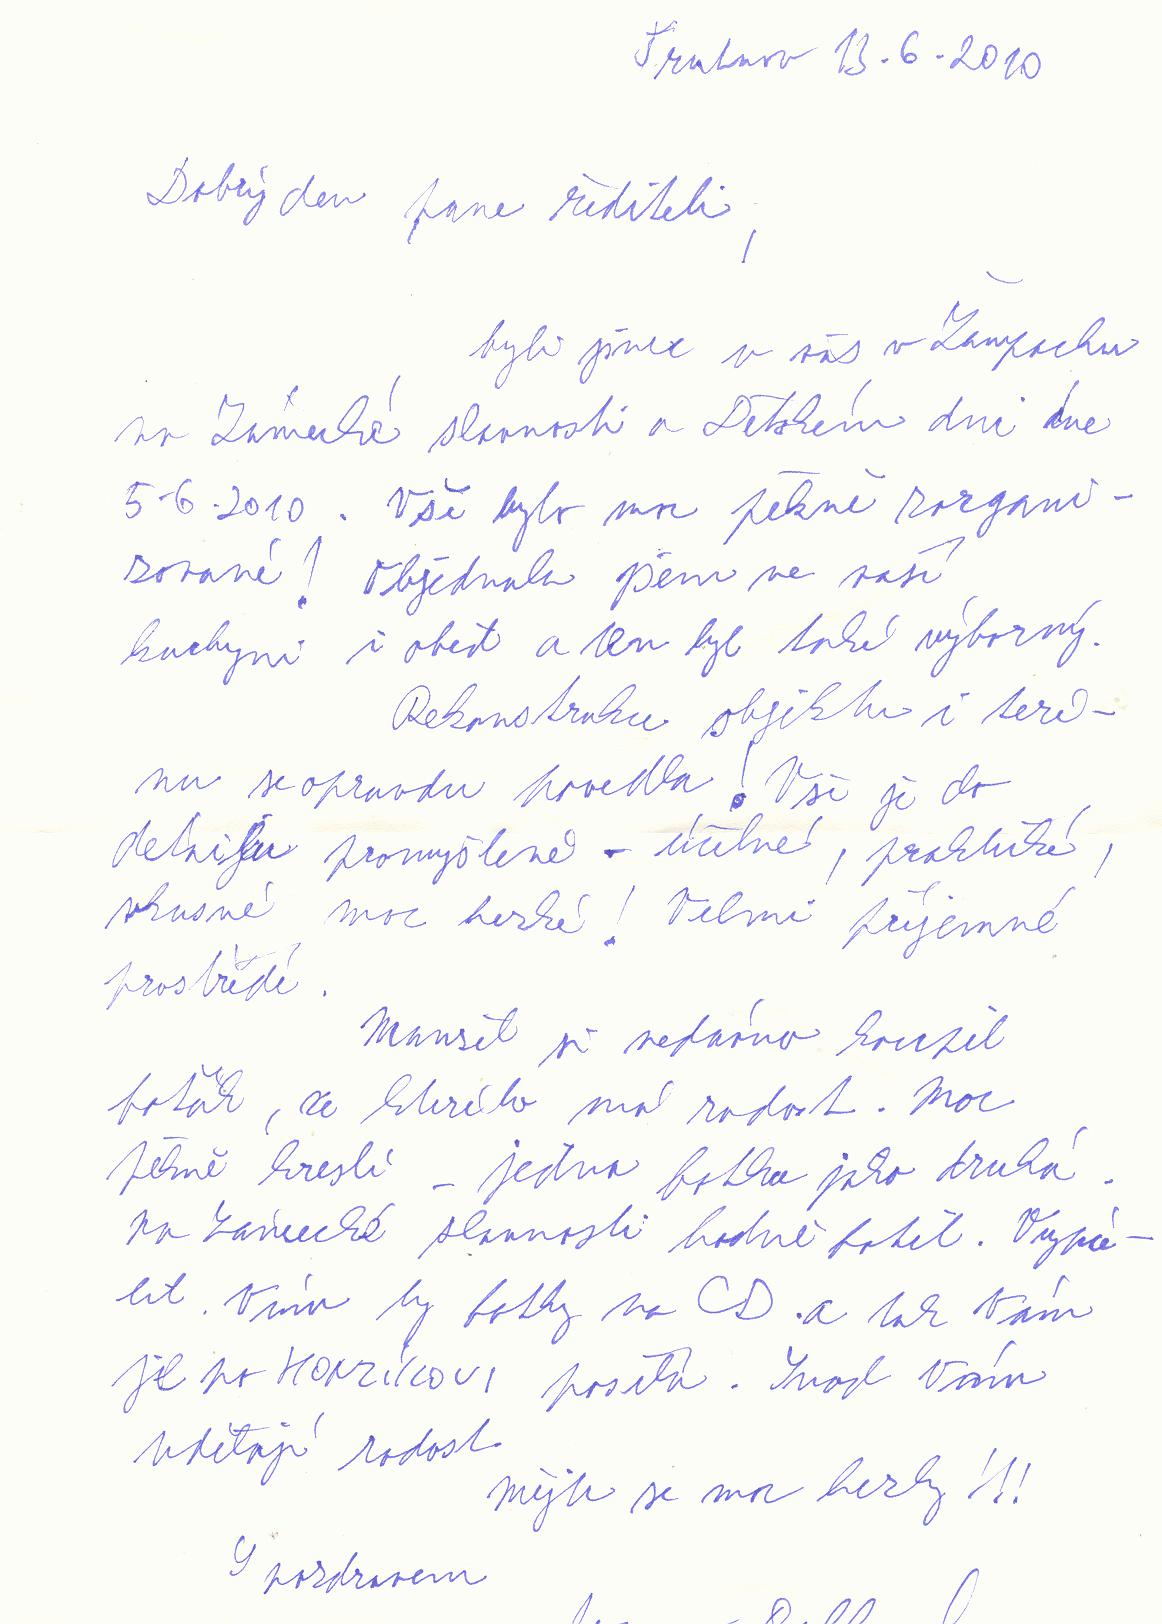 Trutnov 13.6.2010
Dobrý den pane řediteli,
byli jsme u vás v Žampachu
na Zámecké slavnosti a Dětském dni dne
5.6.2010. Vše bylo moc pěkně zorgani-
zované! Objednala jsem ve vaší
kuchyni i oběd a ten byl také výborný.
Rekonstrukce objektu i teré-
nu se opravdu povedla! Vše je do
detailu promyšlené - účelné, praktické,
vkusné moc hezké! Velmi příjemné
prostředí.
Manžel si nedávno koupil
foťák, ze kterého má radost. Moc
pěkně kreslí - jedna fotka jako druhá.
Na Zámecké slavnosti hodně fotil. Vypá-
lil Vám ty fotky na CD a tak Vám
je po HONZÍKOVI posílá. Snad Vám
udělají radost.
Mějte se moc hezky!!!
S pozdravem